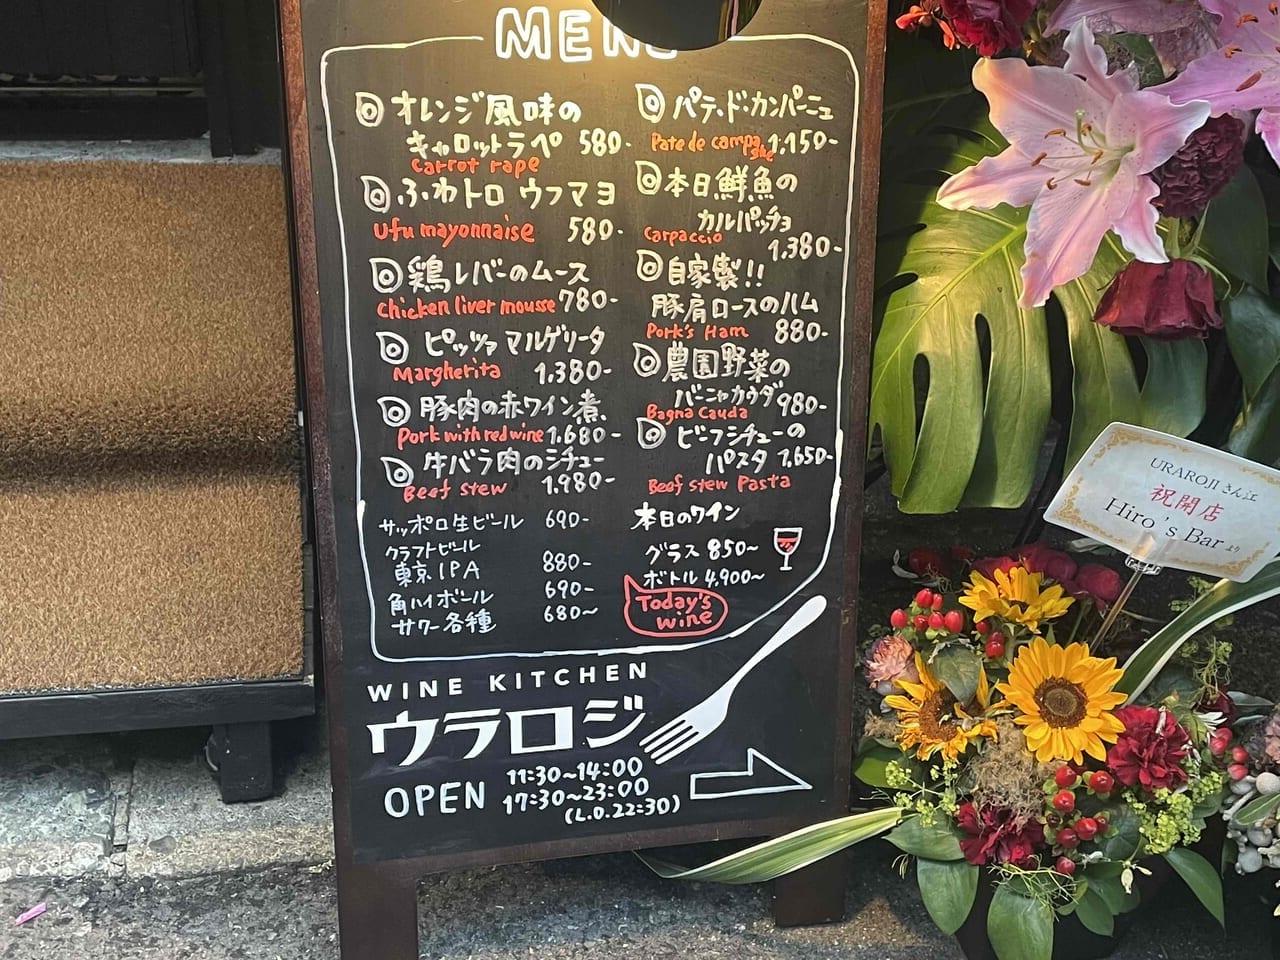 MENU
オレンジ風味の
キャロットラペ 580-
Carrot rape
ふわトロ ウフマヨ
ufu mayonnaise 580-
鶏レバーのムース
chicken liver mousse 780-
ピッツァ マルゲリータ
Margherita 1,380-
豚肉の赤ワイン煮
pork with red wine 1,680-
牛バラ肉のシチュー
Beef stew 1,980-
サッポロ生ビール 690-
クラフトビール
東京IPA 880-
角ハイボール 690-
サワー各種 680~
パテ・ド・カンパーニュ
Pate de campagne 1,150-
本日鮮魚の
カルパッチョ
Carpaccio 1,380-
自家製!!
豚肩ロースのハム
Pork's Ham 880-
農園野菜の
バーニャカウダ 980-
Bagna cauda
ビーフシチューの
パスタ 1,650-
Beef stew Pasta
本日のワイン
グラス 850~
ボトル 4,900~
Today's
wine
WINE KITCHEN
ウラロジ
OPEN 11:30~14:00
17:30~23:00
(L.O.22:30)
URAROJI さん江
祝開店
Hiro's Bar より